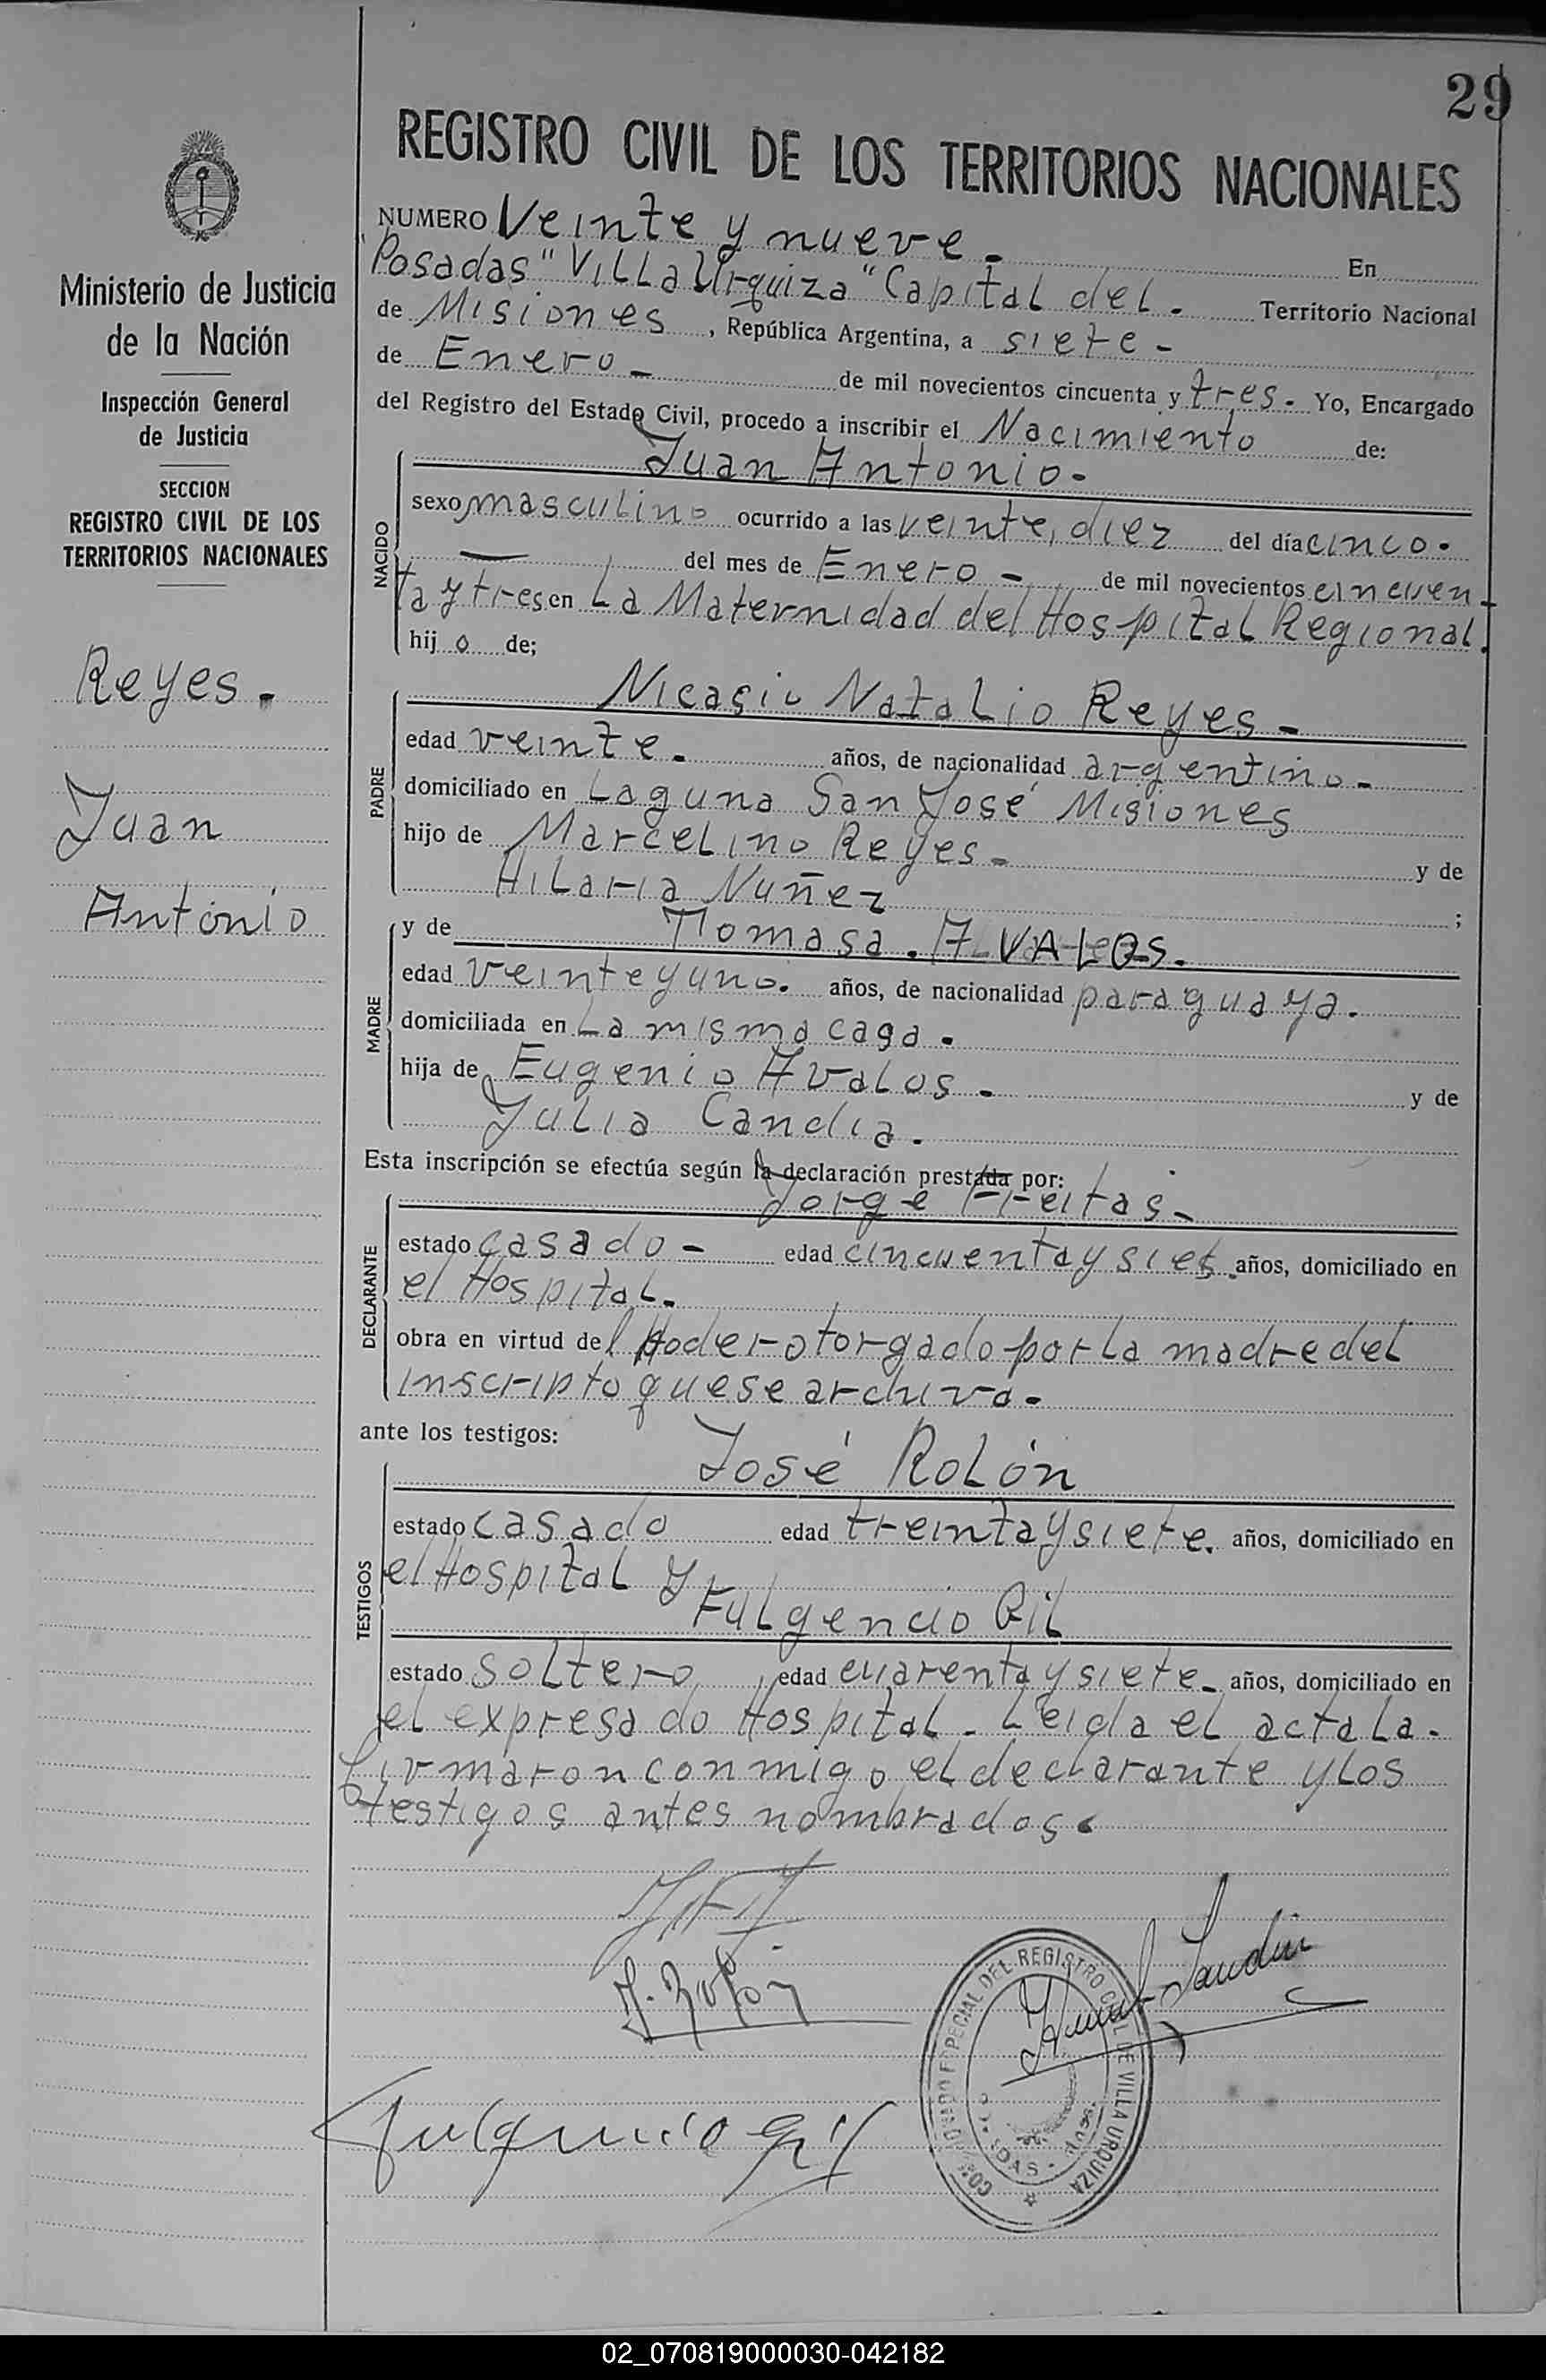 29
REGISTRO CIVIL DE LOS TERRITORIOS NACIONALES
NUMERO Veinte y nueve - En
Posadas "Villa Urquiza" Capital del - Territorio Nacional
de Misiones, República Argentina, a siete -
de Enero - de mil novecientos cincuenta y tres - Yo, Encargado
del Registro del Estado Civil, procedo a inscribir el Nacimiento de:
NACIDO
Juan Antonio -
sexo masculino ocurrido a las veinte, diez del día cinco.
— del mes de Enero - de mil novecientos cincuen-
ta y tres en La Maternidad del Hospital Regional.
hijo de;
PADRE
Nicasio Natalio Reyes -
edad veinte - años, de nacionalidad argentino -
domiciliado en Laguna San José Misiones
hijo de Marcelino Reyes - y de
Hilaria Nuñez ;
MADRE
y de Tomasa. AVALOS.
edad veinte y uno. años, de nacionalidad paraguaya.
domiciliada en La misma casa.
hija de Eugenio Avalos - y de
Julia Candia.
Esta inscripción se efectúa según la declaración prestada por:
DECLARANTE
Jorge Freitas -
estado casado - edad cincuenta y años, domiciliado en
el Hospital.
obra en virtud del Poder otorgado por La madre del
inscripto que se archiva.
ante los testigos:
TESTIGOS
José Rolón
estado casado edad treinta y siete. años, domiciliado en
el Hospital y
Fulgencio Gil
estado soltero, edad cuarenta y siete - años, domiciliado en
el expresado Hospital - Leida el acta la -
firmaron conmigo el declarante y los
testigos antes nombrados.
J. Rolón
Fulgencio Gil
DEL REGISTRO CIVIL DE VILLA URQUIZA
Ministerio de Justicia
de la Nación
Inspección General
de Justicia
SECCION
REGISTRO CIVIL DE LOS
TERRITORIOS NACIONALES
Reyes.
Juan
Antonio
02_070819000030-042182